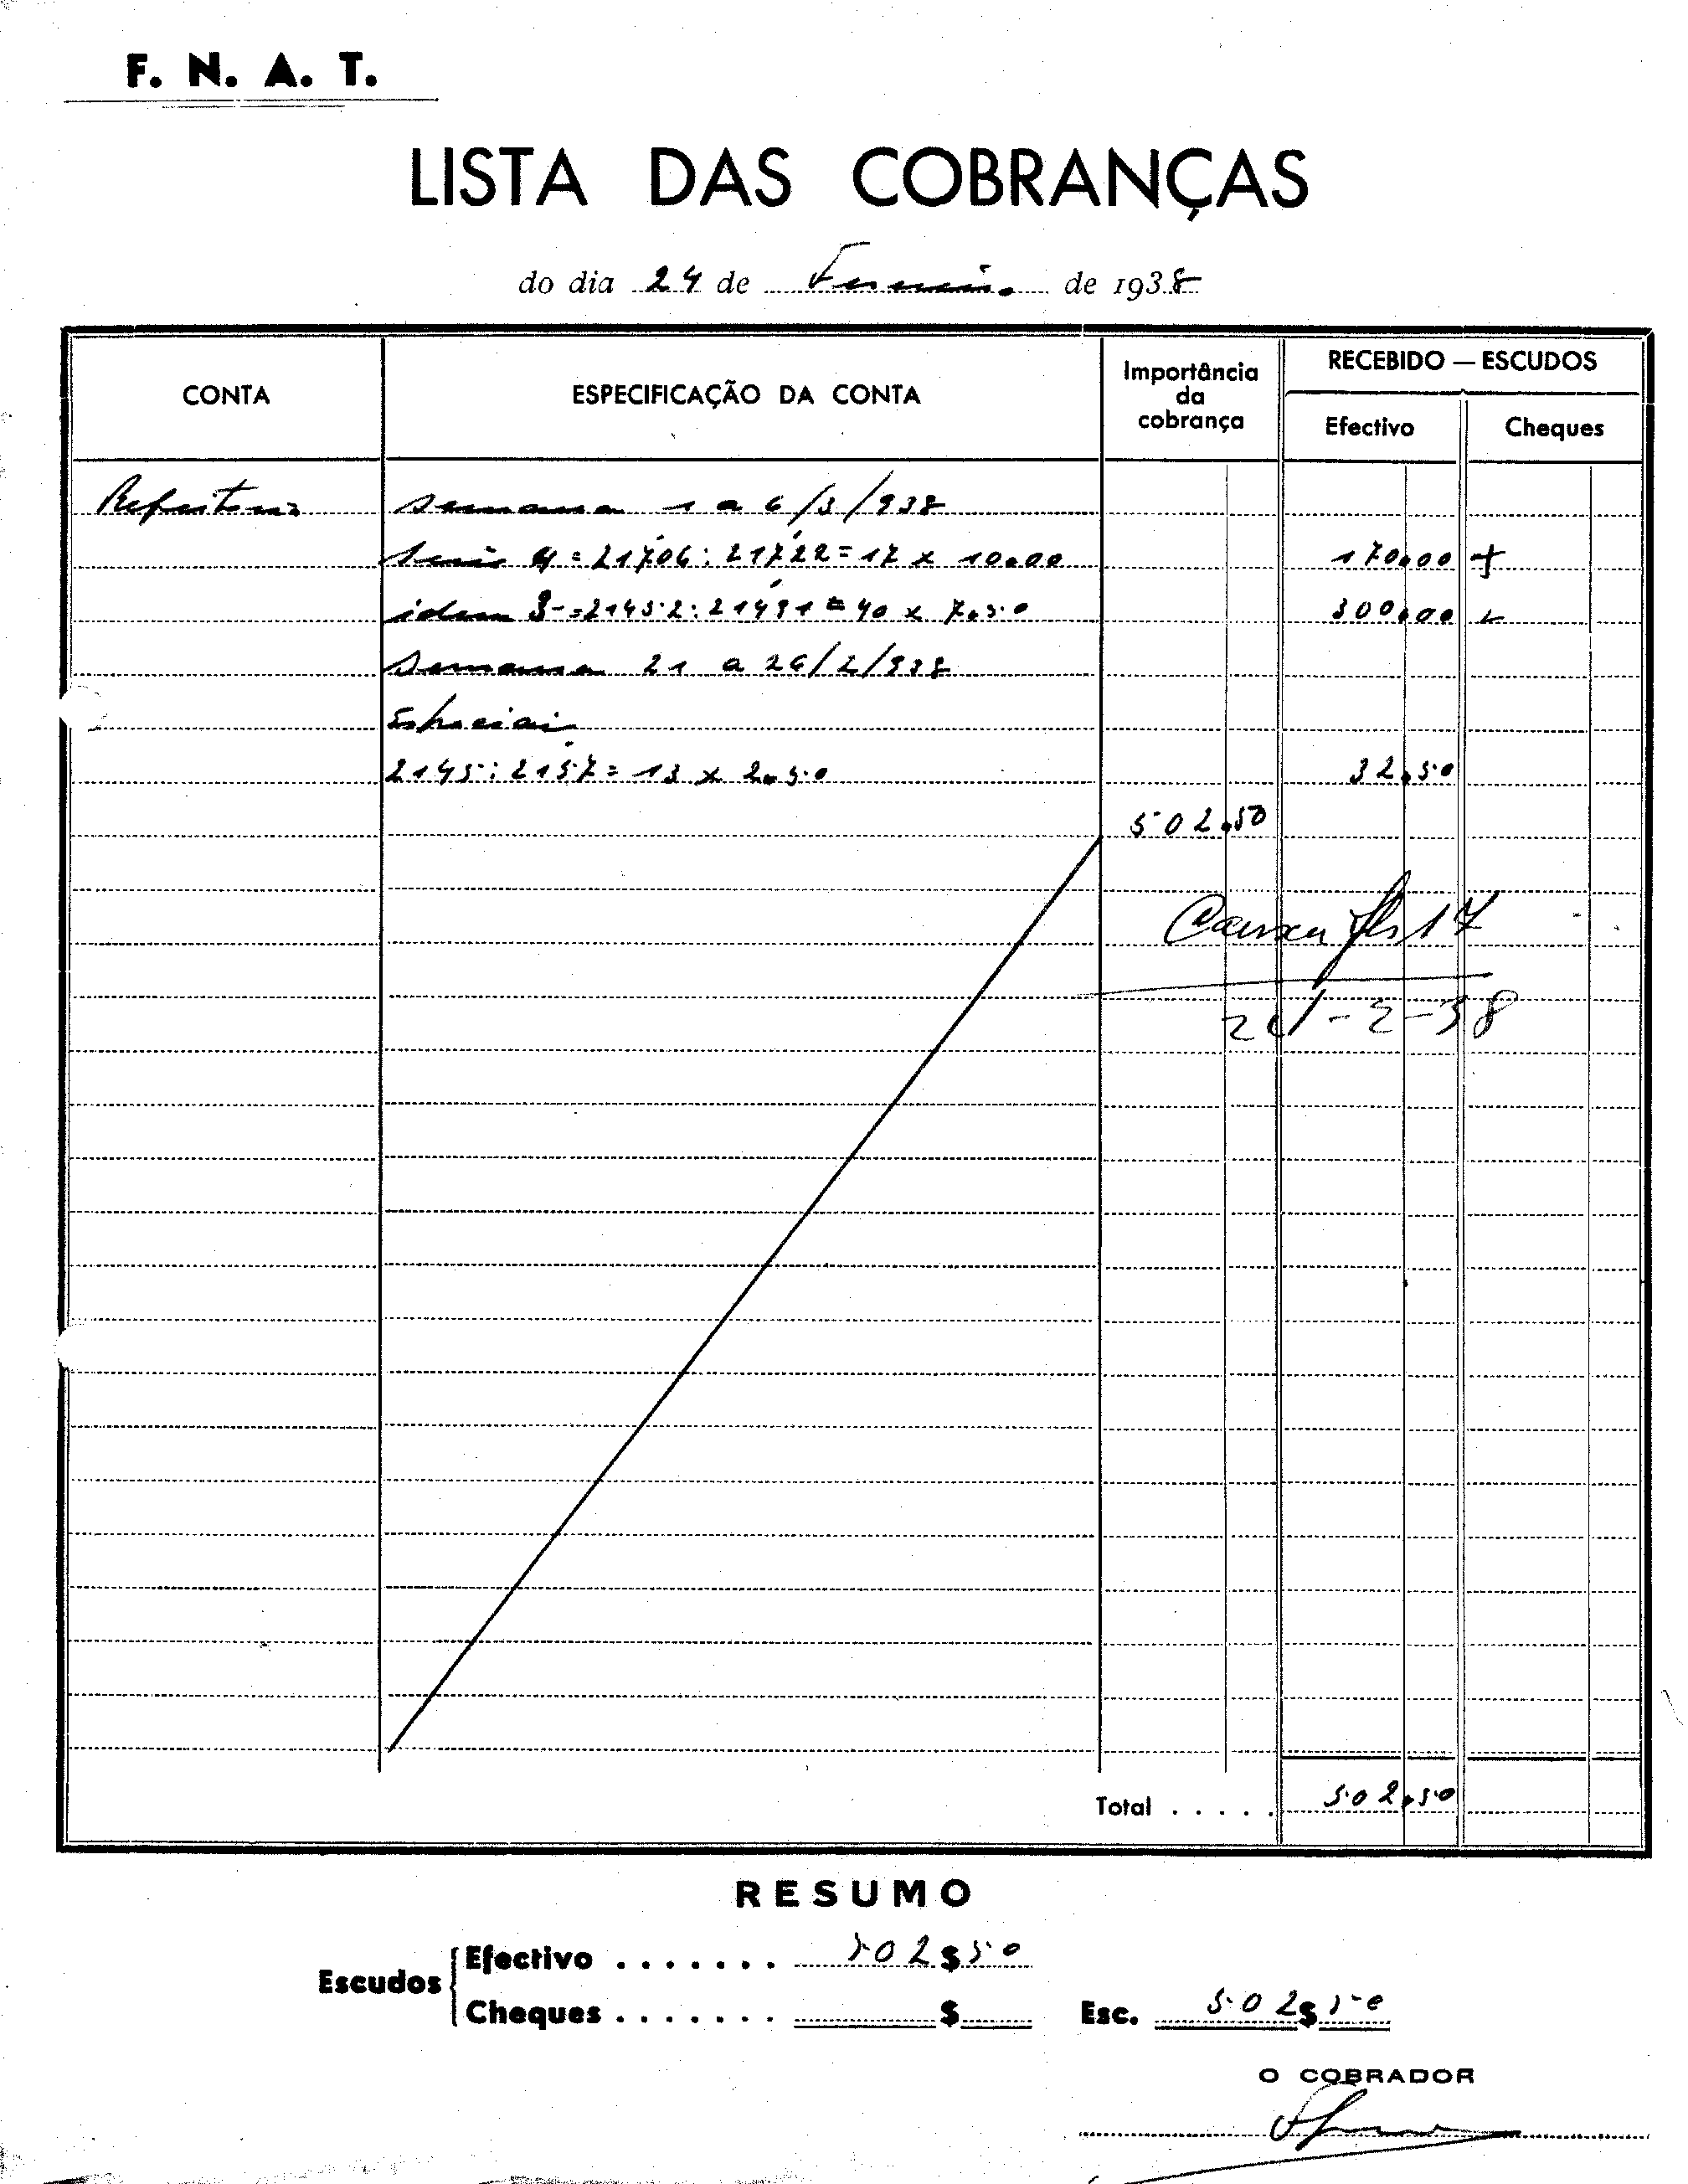 F. N. A. T.
LISTA DAS COBRANÇAS
do dia 24 de Fevereiro de 1938
CONTA
ESPECIFICAÇÃO DA CONTA
Importância
da
cobrança
RECEBIDO — ESCUDOS
Efectivo
Cheques
Refeitorios semana 1 a 6/3/938
serie 4 = 21706 : 21722 = 17 x 10.00 170.00
idem 3 = 21452 : 21491 = 40 x 7.50 300.00
semana 21 a 26/2/938
Especiais
2145 : 2157 = 13 x 2.50 32.50
502.50
Caixa fls 17
24-2-38
Total . . . . . 502.50
RESUMO
Escudos
Efectivo . . . . . . . 502$50
Cheques . . . . . . . $
Esc. 502$50
O COBRADOR